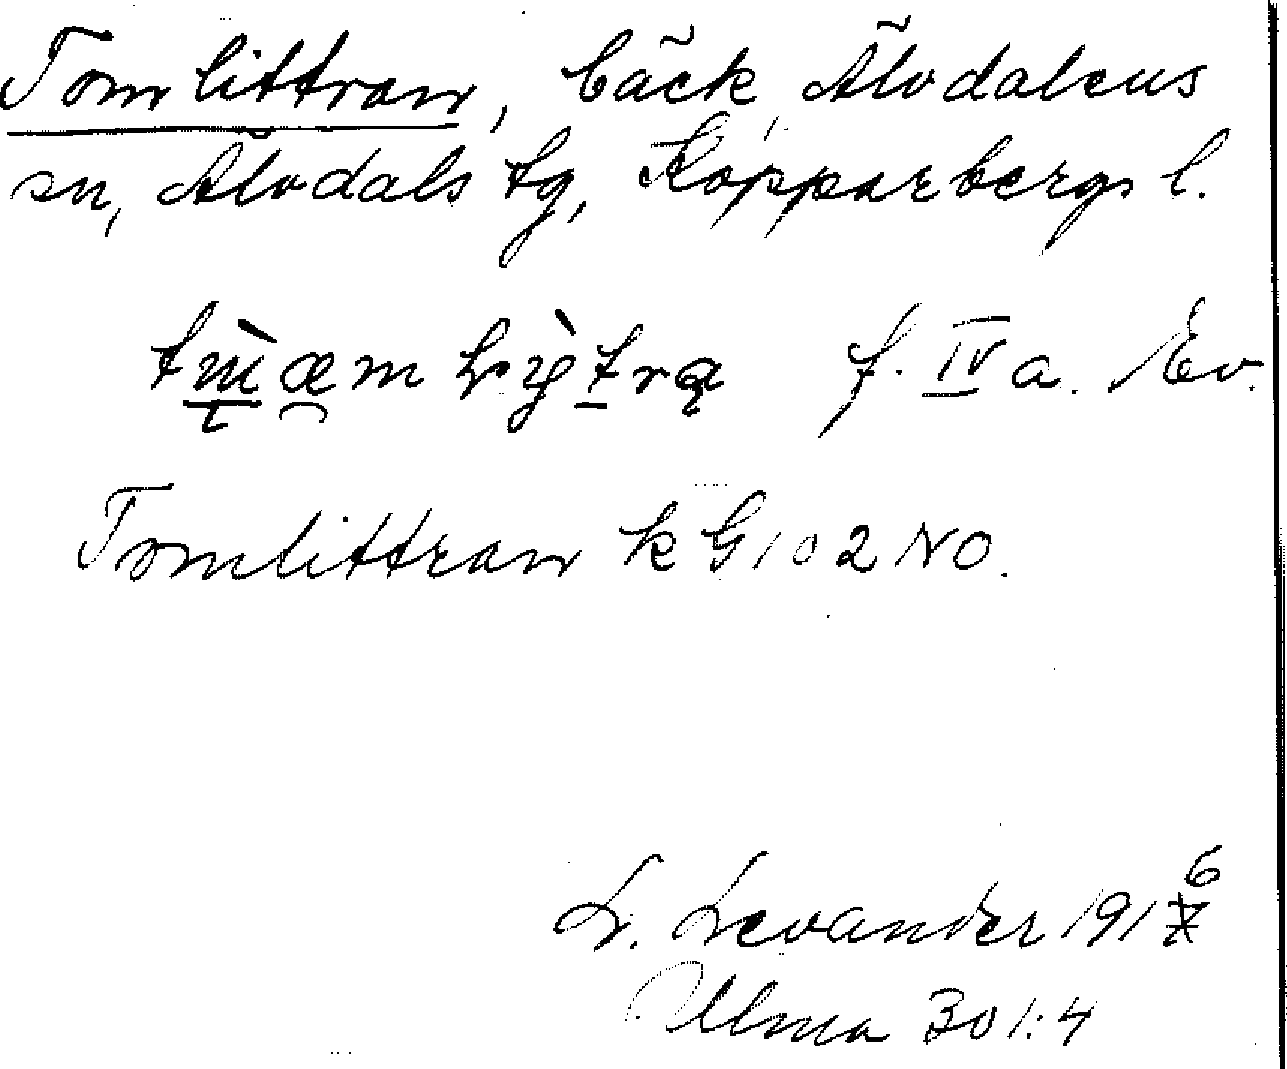 Tomlittran, bäck, Älvdalens
sn, Älvdals tg, Kopparbergs l.
f. IV a. Ev.
Tomlittran k G 102 NO.
L. Levander 1916
Ulma 301:4